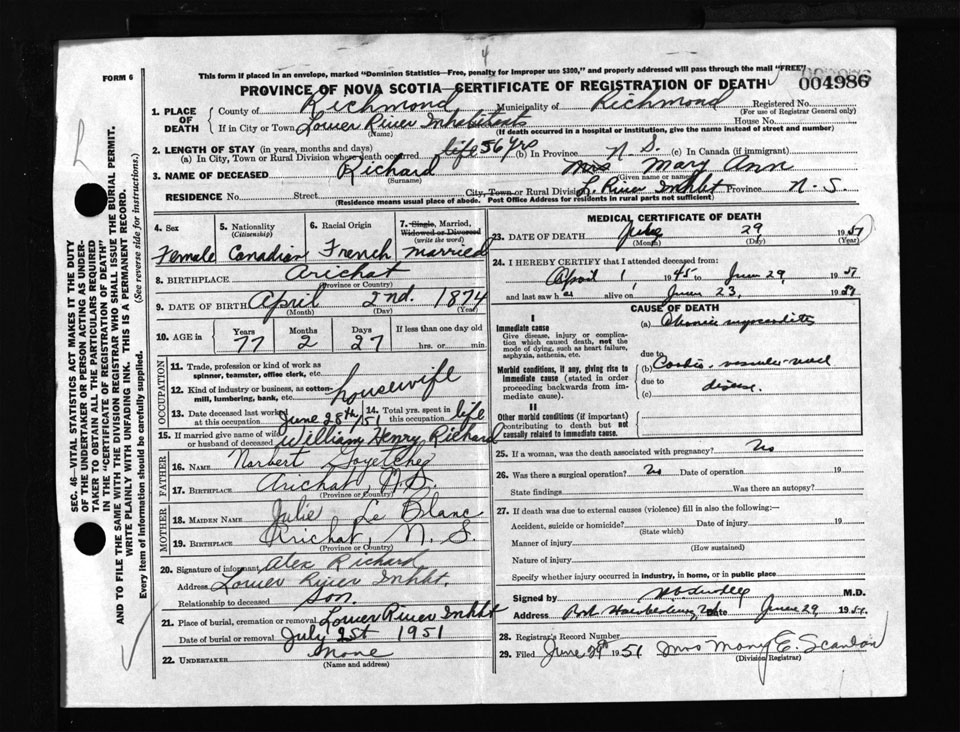 This form if placed in an envelope, marked "Dominion Statistics—Free, penalty for improper use $300," and properly addressed will pass through the mail "FREE"
FORM 6
004986
PROVINCE OF NOVA SCOTIA—CERTIFICATE OF REGISTRATION OF DEATH
1. PLACE OF DEATH County of Richmond Municipality of Richmond Registered No.
(For use of Registrar General only)
If in City or Town Lower River Inhabitants House No.
(Name) (If death occurred in a hospital or institution, give the name instead of street and number)
2. LENGTH OF STAY (in years, months and days)
(a) In City, Town or Rural Division where death occurred life 56 yrs (b) In Province N S. (c) In Canada (if immigrant)
3. NAME OF DECEASED Richard Mrs Mary Ann
(Surname) (Given name or names)
RESIDENCE No. Street City, Town or Rural Division L. River Inhbt Province N. S.
(Residence means usual place of abode. Post Office Address for residents in rural parts not sufficient)
4. Sex Female
5. Nationality (Citizenship) Canadian
6. Racial Origin French
7. Single, Married, Widowed or Divorced (write the word) married
8. BIRTHPLACE Arichat
(Province or Country)
9. DATE OF BIRTH April 2nd. 1874
(Month) (Day) (Year)
10. AGE in Years 77 Months 2 Days 27 If less than one day old hrs. or min.
OCCUPATION
11. Trade, profession or kind of work as spinner, teamster, office clerk, etc.
12. Kind of industry or business, as cotton-mill, lumbering, bank, etc. housewife
13. Date deceased last worked at this occupation June 28th/51 14. Total yrs. spent in this occupation life
15. If married give name of wife or husband of deceased William Henry Richard
FATHER
16. NAME Norbert
17. BIRTHPLACE Arichat, N.S.
(Province or Country)
MOTHER
18. MAIDEN NAME Julie Le Blanc
19. BIRTHPLACE Arichat, N. S.
(Province or Country)
20. Signature of informant Alex Richard
Address Lower River Inhbt.
Relationship to deceased Son.
21. Place of burial, cremation or removal Lower River Inhbt
Date of burial or removal July 1951
22. UNDERTAKER None
(Name and address)
MEDICAL CERTIFICATE OF DEATH
23. DATE OF DEATH June 29, 1951
(Month) (Day) (Year)
24. I HEREBY CERTIFY that I attended deceased from:
April 1 1945 to June 29, 1951
and last saw h er alive on June 23, 1951
CAUSE OF DEATH
I
Immediate cause
Give disease, injury or complication which caused death, not the mode of dying, such as heart failure, asphyxia, asthenia, etc.
(a) Chronic myocarditis
due to
Morbid conditions, if any, giving rise to immediate cause (stated in order proceeding backwards from immediate cause).
(b)
due to disease.
(c)
II
Other morbid conditions (if important) contributing to death but not causally related to immediate cause.
25. If a woman, was the death associated with pregnancy? No
26. Was there a surgical operation? No Date of operation 19
State findings Was there an autopsy?
27. If death was due to external causes (violence) fill in also the following:—
Accident, suicide or homicide? Date of injury 19
(State which)
Manner of injury
(How sustained)
Nature of injury
Specify whether injury occurred in industry, in home, or in public place
Signed by M.D.
Address Port Hawkesbury Date June 29, 1951.
28. Registrar's Record Number
29. Filed June 29th 1951 Mrs Mary E. Scanlon
(Division Registrar)
SEC. 46—VITAL STATISTICS ACT MAKES IT THE DUTY
OF THE UNDERTAKER OR PERSON ACTING AS UNDER-
TAKER TO OBTAIN ALL THE PARTICULARS REQUIRED
IN THE "CERTIFICATE OF REGISTRATION OF DEATH"
AND TO FILE THE SAME WITH THE DIVISION REGISTRAR WHO SHALL ISSUE THE BURIAL PERMIT.
WRITE PLAINLY WITH UNFADING INK. THIS IS A PERMANENT RECORD.
Every item of information should be carefully supplied. (See reverse side for instructions.)